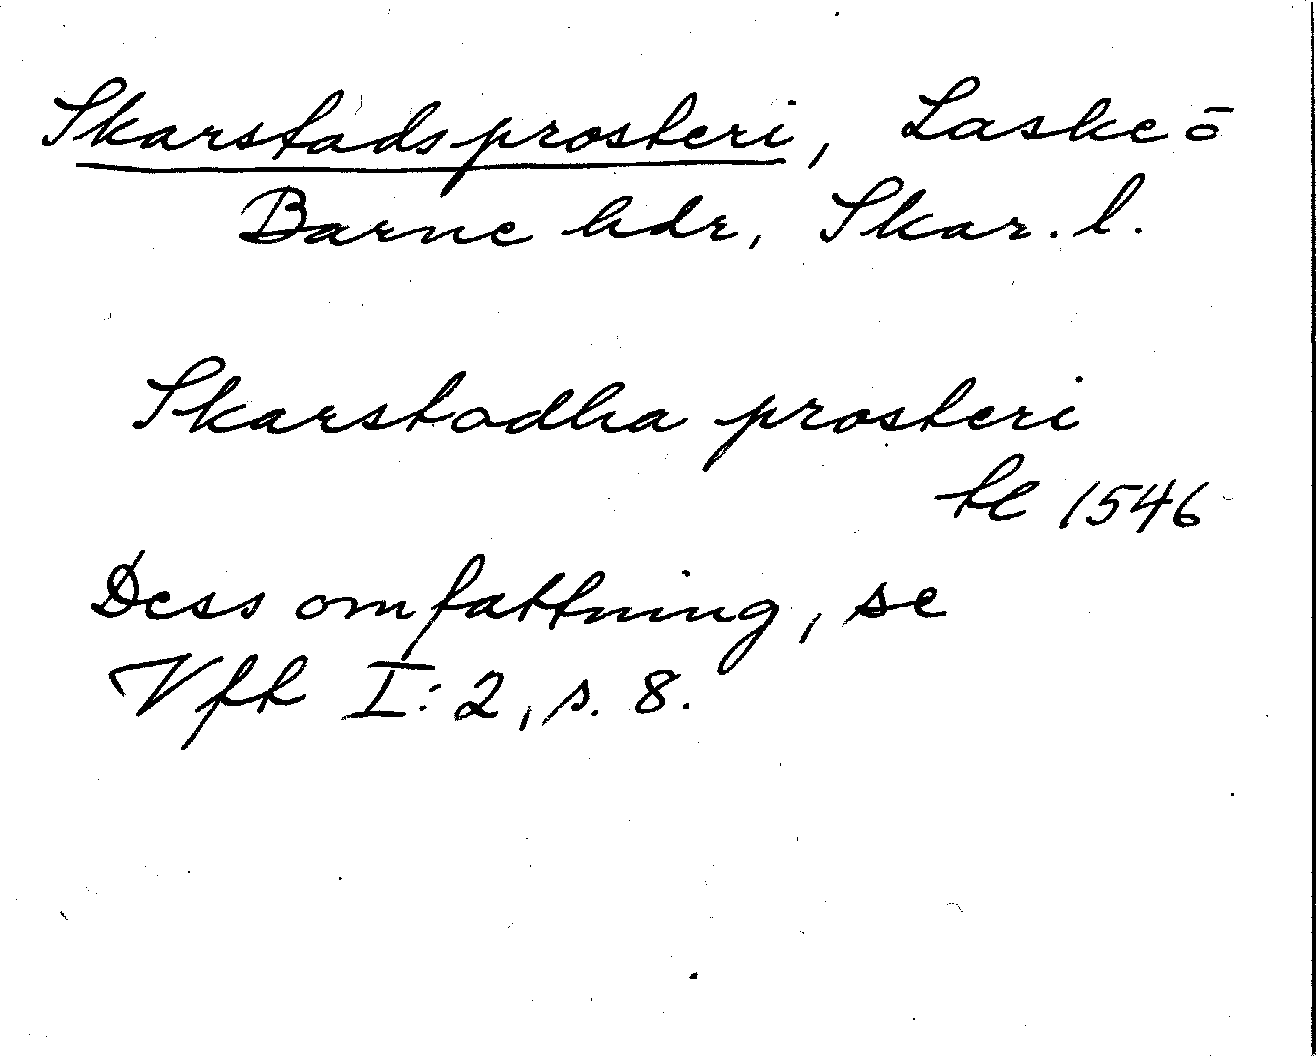 Skarstads prosteri, Laske ō
Barne hdr, Skar. l.
Skarstadha prosteri
tl 1546
Dess omfattning, se
Vft I:2, s. 8.